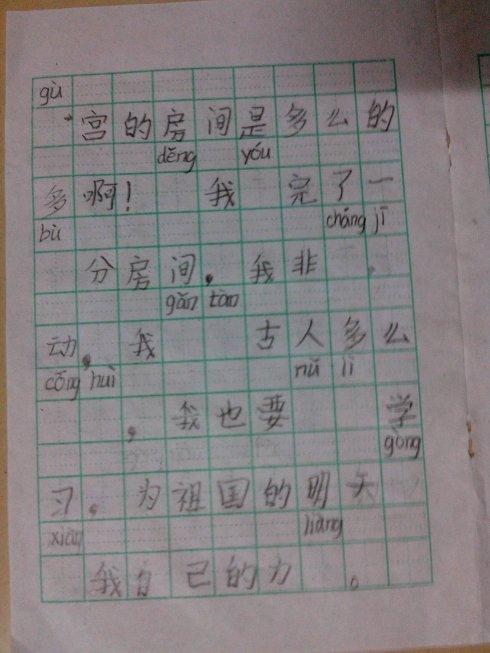 gù
宫的房间是多么的
děng yóu
多啊！ 我 完了一
bù cháng jī
分房间，我非 。
gǎn tàn
动，我 古人多么
cōng huì nǔ lì
，我也要 学
gòng
习。为祖国的明天
xiàn liàng
我自己的力 。